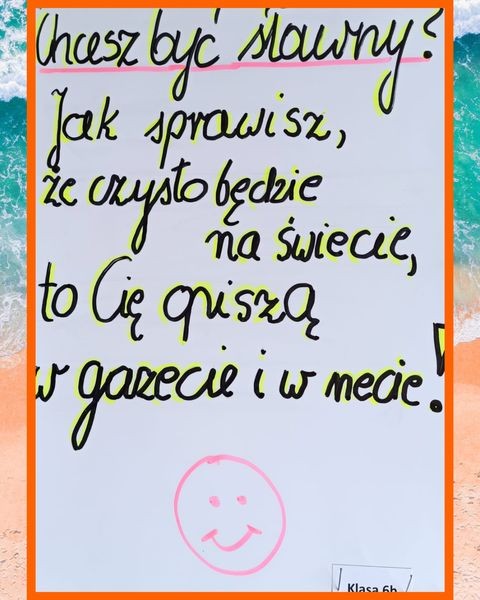 Chcesz być sławny?
Jak sprawisz,
że czysto będzie
na świecie,
to Cię opiszą
w gazecie i w necie!
Klasa 6b